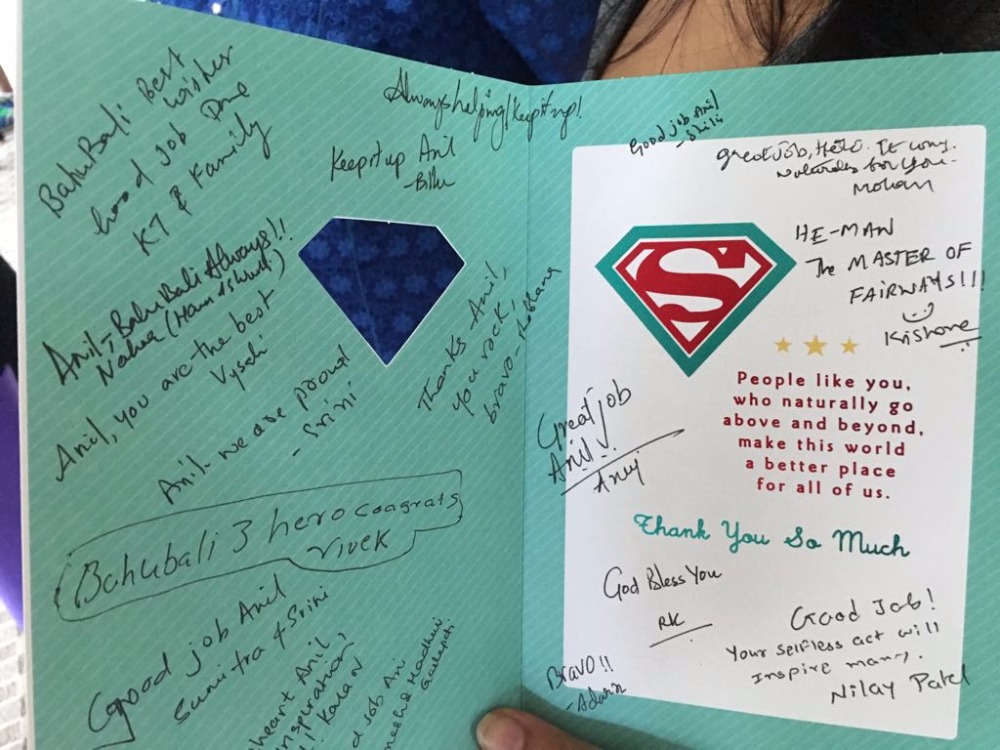 BahuBali Best
wishes
Good Job Done
KT & Family
Always helping! Keep it up!
Keep it up Anil
Anil - BahuBali Always!!
Anil, you are the best
Anil - we are proud
- Srini
Thanks Anil,
you rock,
bravo,
Bahubali 3 hero Coagrats
Vivek
Good job Anil
Sumitra & Srini
heart Anil
nspiration,
Kalan
d job Ani
Good job Anil
Great job, Hero. It comes
naturally for you.
Mohan
HE-MAN
The MASTER OF
FAIRWAYS!!!
Kishore
S
People like you,
who naturally go
above and beyond,
make this world
a better place
for all of us.
Thank You So Much
Great job
Anil!
God Bless You
RK
Good Job!
Your selfless act will
Inspire many.
Nilay Patel
Bravo!!